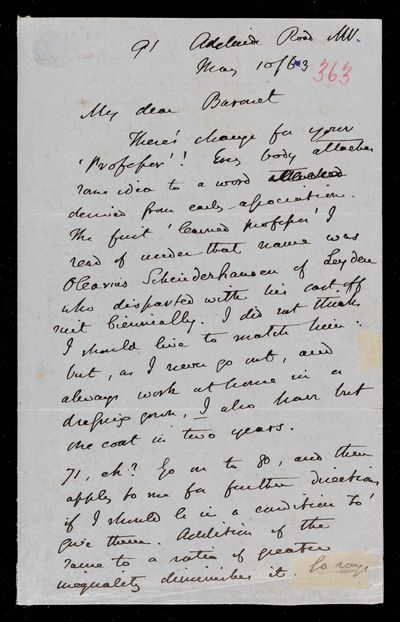 91 Adelaide Road NW.
May 10/63 363
My dear Baronet
There's change for your
'Professor'! Every body attaches
some idea to a word attached
derived from early association.
The first 'learned professor' I
read of under that name was
Olearius Schinderhausen of Leyden
who disparted with his cast off
suit biennially. I did not think
I should live to match him:
but, as I never go out, and
always work at home in a
dressing gown, I also have but
one coat in two years.
71, eh? Go on to 80, and then
apply to me for further directions
if I should be in a condition to
give them. Addition of the
same to a ratio of greater
inequality diminishes it. So says